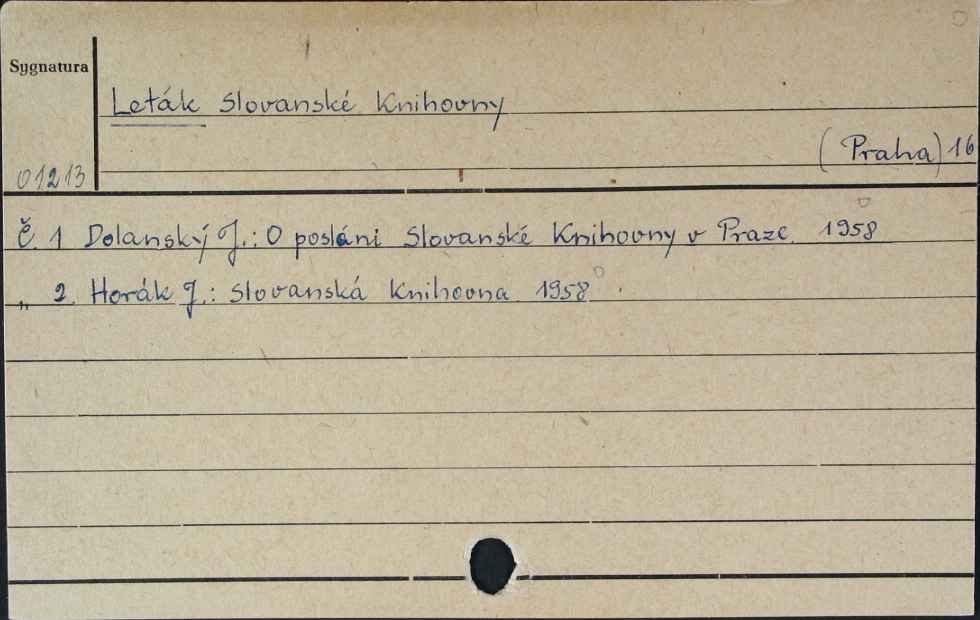 Sygnatura
Leták Slovanské Knihovny
(Praha) 16
01213
Č. 1 Dolanský J.: O posláni Slovanské Knihovny v Praze. 1958
„ 2. Horák J.: Slovanská Knihovna 1958